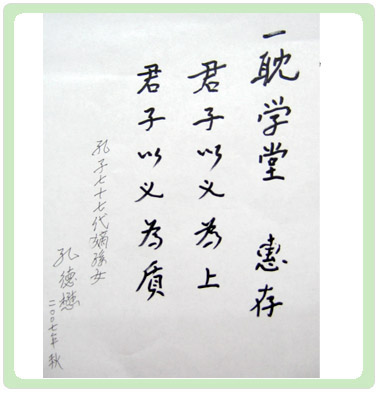 一耽学堂 惠存
君子以义為上
君子以义為质
孔子七十七代嫡孫女
孔德懋
二〇〇七年秋